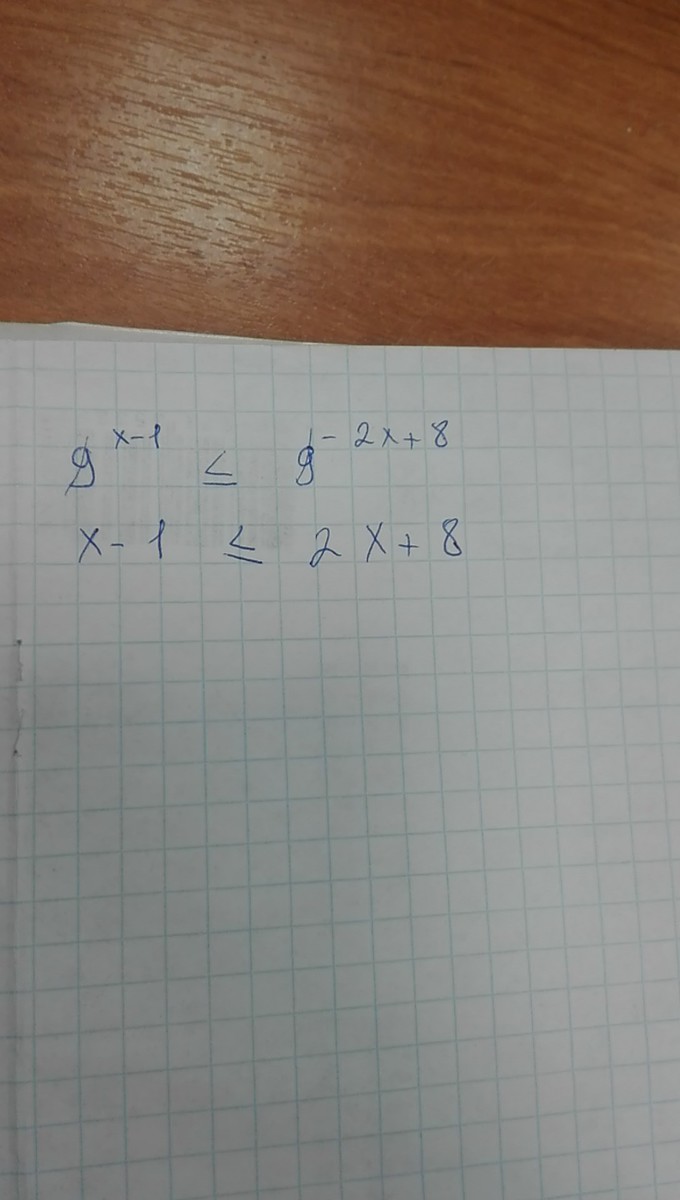 9^{x-1} ≤ 9^{-2x+8}
x-1 ≤ 2x+8